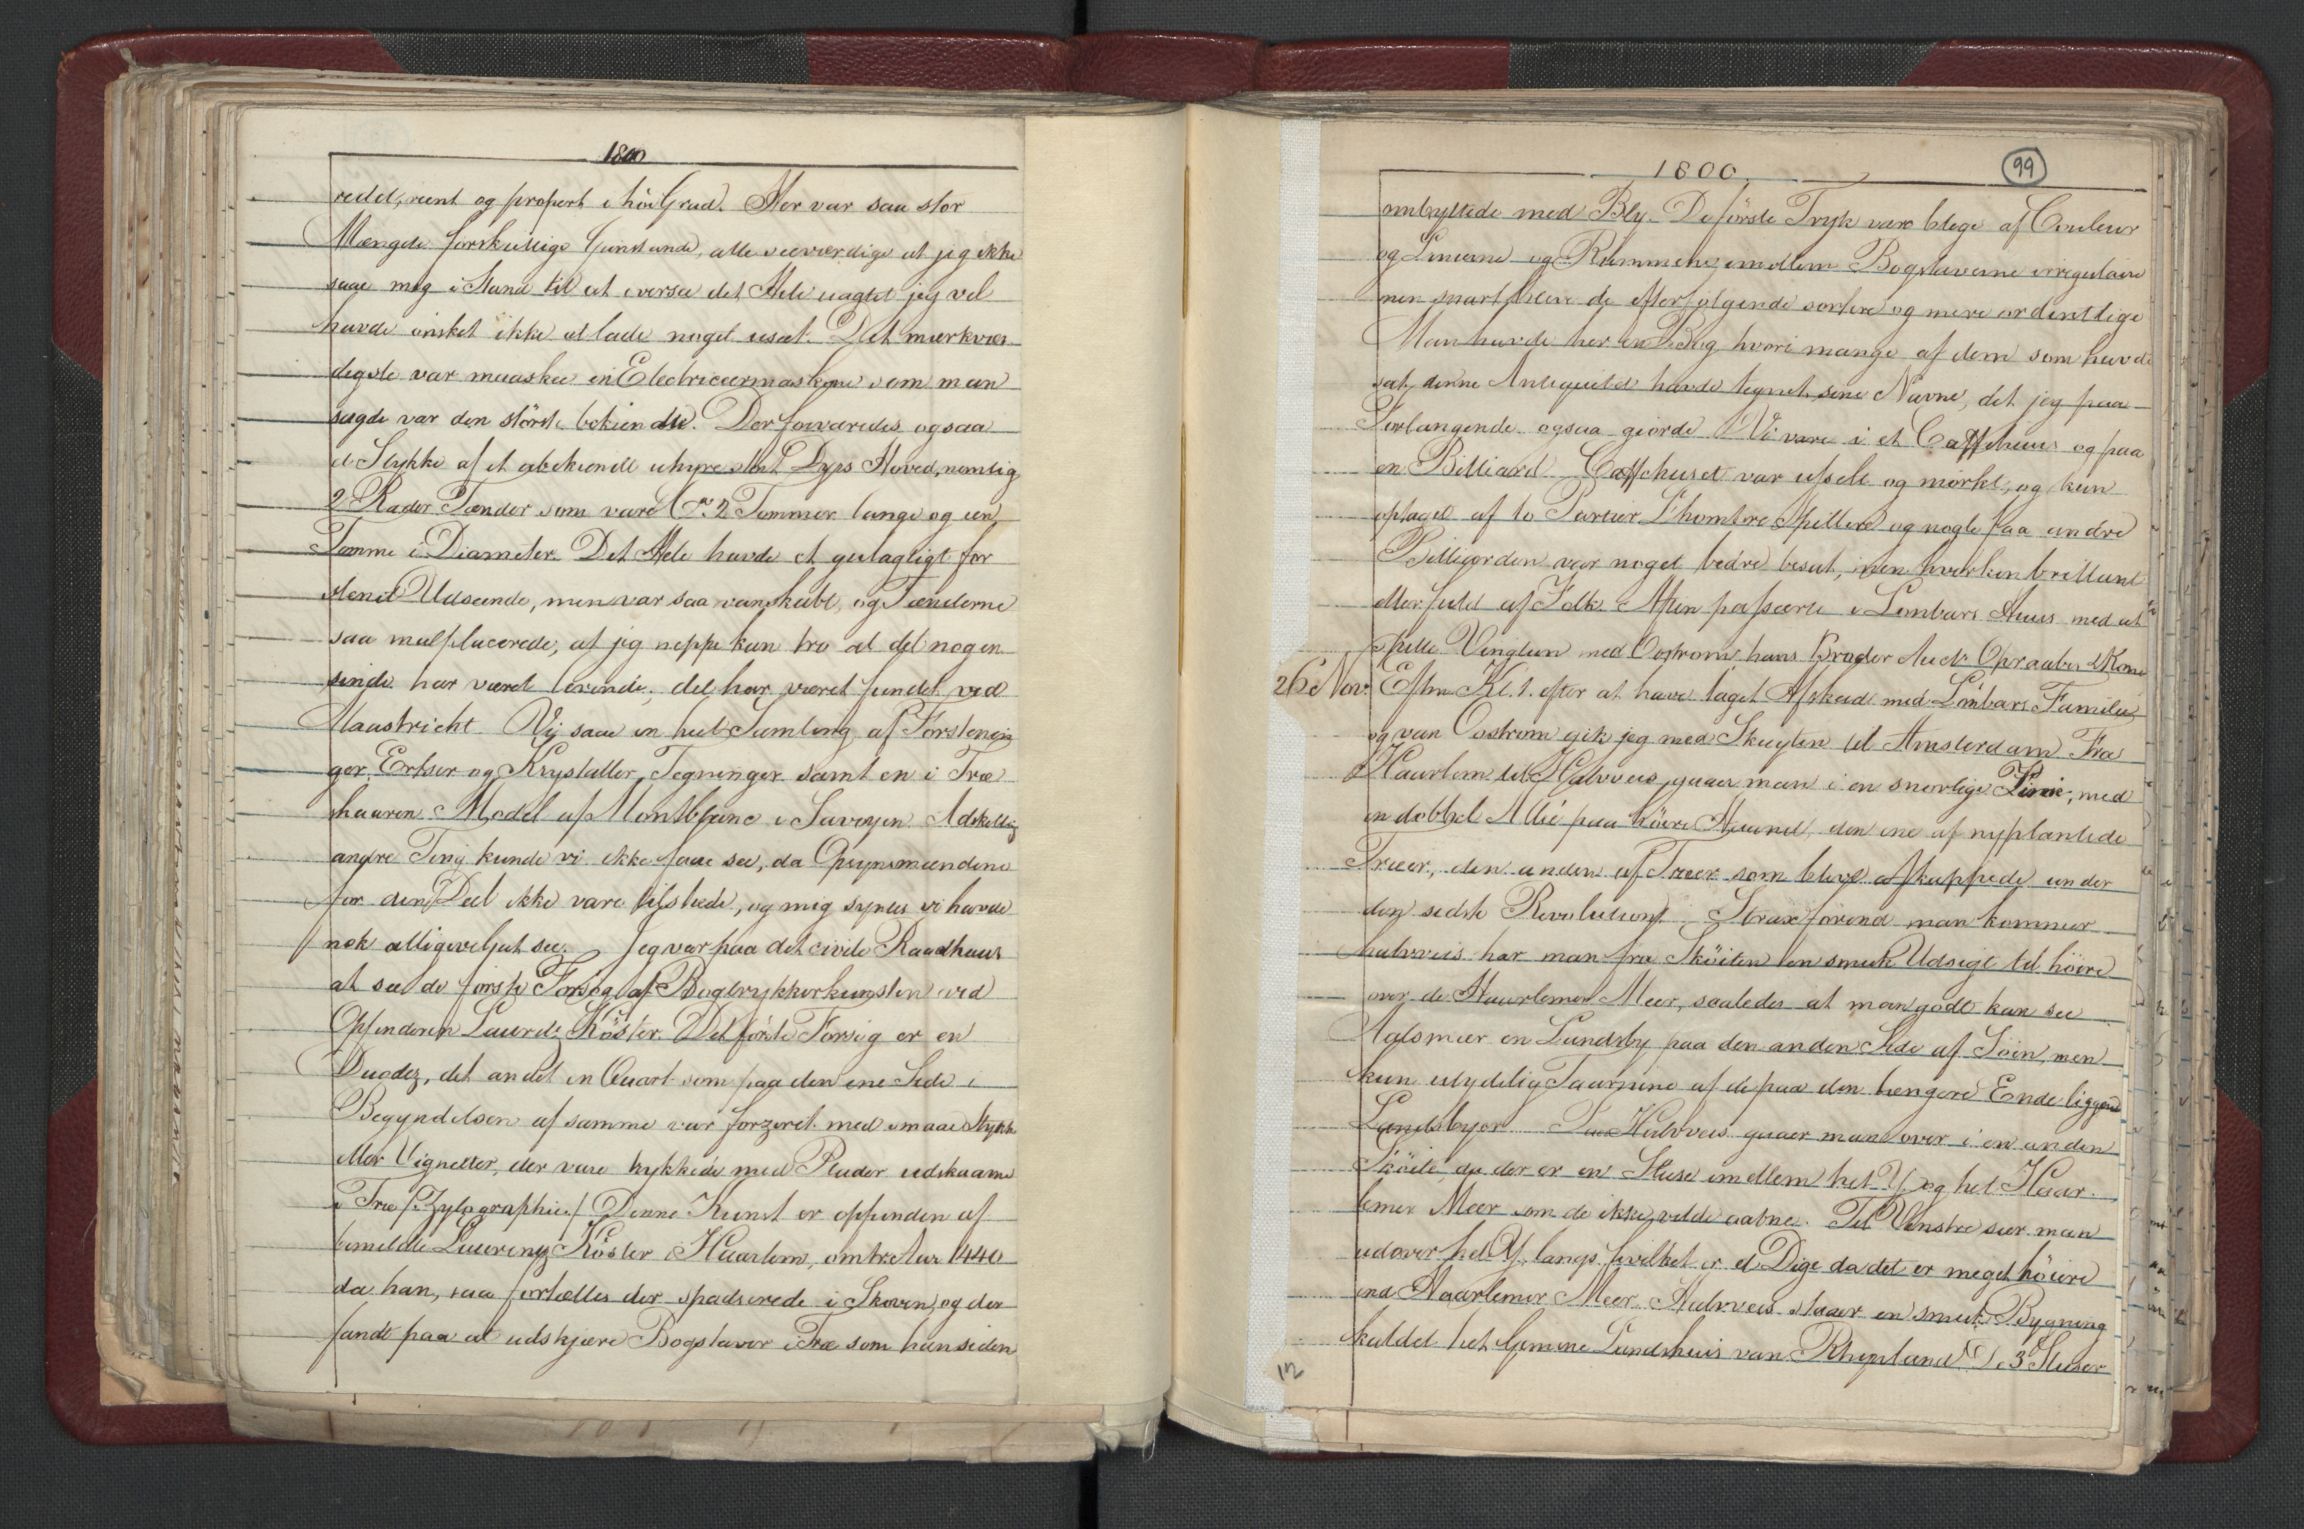 1800
redet, reent og propert i höi Grad. Her var saa stor
Mængde forskiellige Genstande, alle seeværdige at jeg ikke
saae mig i Stand til at oversee det Hele uagtet jeg vel
havde önsket ikke at lade noget useet. Det mærkvær
digste var maaskee en Electriceermaskine som man
sagde var den störste bekiendte. Der forvaredes ogsaa
et Stykke af et ubekiendt uhyre stort Dyrs Hoved, nemlig
2 Rader Tænder som vare Cr. 2 Tommer lange og een
Tomme i Diameter. Det Hele havde et gulagtigt for
stenet Udseende, men var saa vanskabt, og Tænderne
saa malplacerede, at jeg neppe kan tro at det nogen
sinde har været levende, det har været fundet ved
Maastricht. Vi saae en heel Samling af Forstenin
ger, Ertser og Krystaller, Tegninger samt en i Træ
skaaren Model af Montblanc i Savoyen. Adskillig
andre Ting kunde vi ikke faae see, da Opsynsmændene
for den Deel ikke vare tilstede, og mig synes vi havde
nok alligevel at see. Jeg var paa det civile Raadhuus
at see de förste Forsög af Bogtrykkerkunsten ved
Opfinderen Laurds Köster. Det förste Forsög er en
Duodez, det andet en Quart som paa den ene Side i
Begyndelsen af samme var forziret med smaae Stykk
eller Vignetter, der vare trykkede med Plader udskaarne
i Træ /: Zylographie :/ Denne Kunst er opfunden af
bemeldte Laurenz Köster i Haarlem, omtr. Aar 1440
da han, saa fortælles der spadserede i Skoven, og der
fandt paa at udskjære Bogstaver i Træ som han siden
1800.
99
ombyttede med Bly. De förste Tryk vare blege af Couleur
og Linierne og Rummene imellem Bogstaverne irregulaire
men snart bleve de efterfölgende sortere og mere ordentlige
Man havde her en Bog hvori mange af dem som havde
seet denne Antiquitet havde tegnet sine Navne, det jeg paa
Forlangende ogsaa giorde. Vi vare i et Caffehuus og paa
en Billiard. Caffehuset var usselt og mörkt, og kun
optaget af to Partier L'hombre Spillere og nogle faa andre
Billiarden var noget bedre besat, men hverken brillant
eller fuld af Folk. Aften passerte i Lombars Huus med at
spille Vingtun med Oostrom, hans Broder Auct: Opraaber & Kone
26e Nov. Efterm Kl. 1. efter at have taget Afskeed med Lömbars Familie
og van Oostrom gik jeg med Skuyten til Amsterdam. Fra
Haarlem til Halvveis gaaer man i en snorlige Linie, med
en dobbel Allé paa höire Haand, den ene af nyplantede
Træer, den anden af Træer som bleve afkappede under
den sidste Revolution. Strax förend man kommer
halvveis har man fra Sköiten en smuk Udsigt til höire
over de Haarlemer Meer, saaledes at man godt kan see
Aalsmeer en Landsby paa den anden Side af Söen, men
kun utydelig Taarnene af de paa den længere Ende liggende
Landsbyer. Paa Halvveis gaaer man over i en anden
Sköite, da der er en Sluse imellem het Y, og het Haar
lemer Meer som de ikke vilde aabne. Til Venstre seer man
udover het Y langs hvilket er et Dige da det er meget höiere
end Haarlemer Meer. Halvveis staaer en smuk Bygning
kaldet het Gemene Landshuis van Rhynland. De 3 Sluser
12